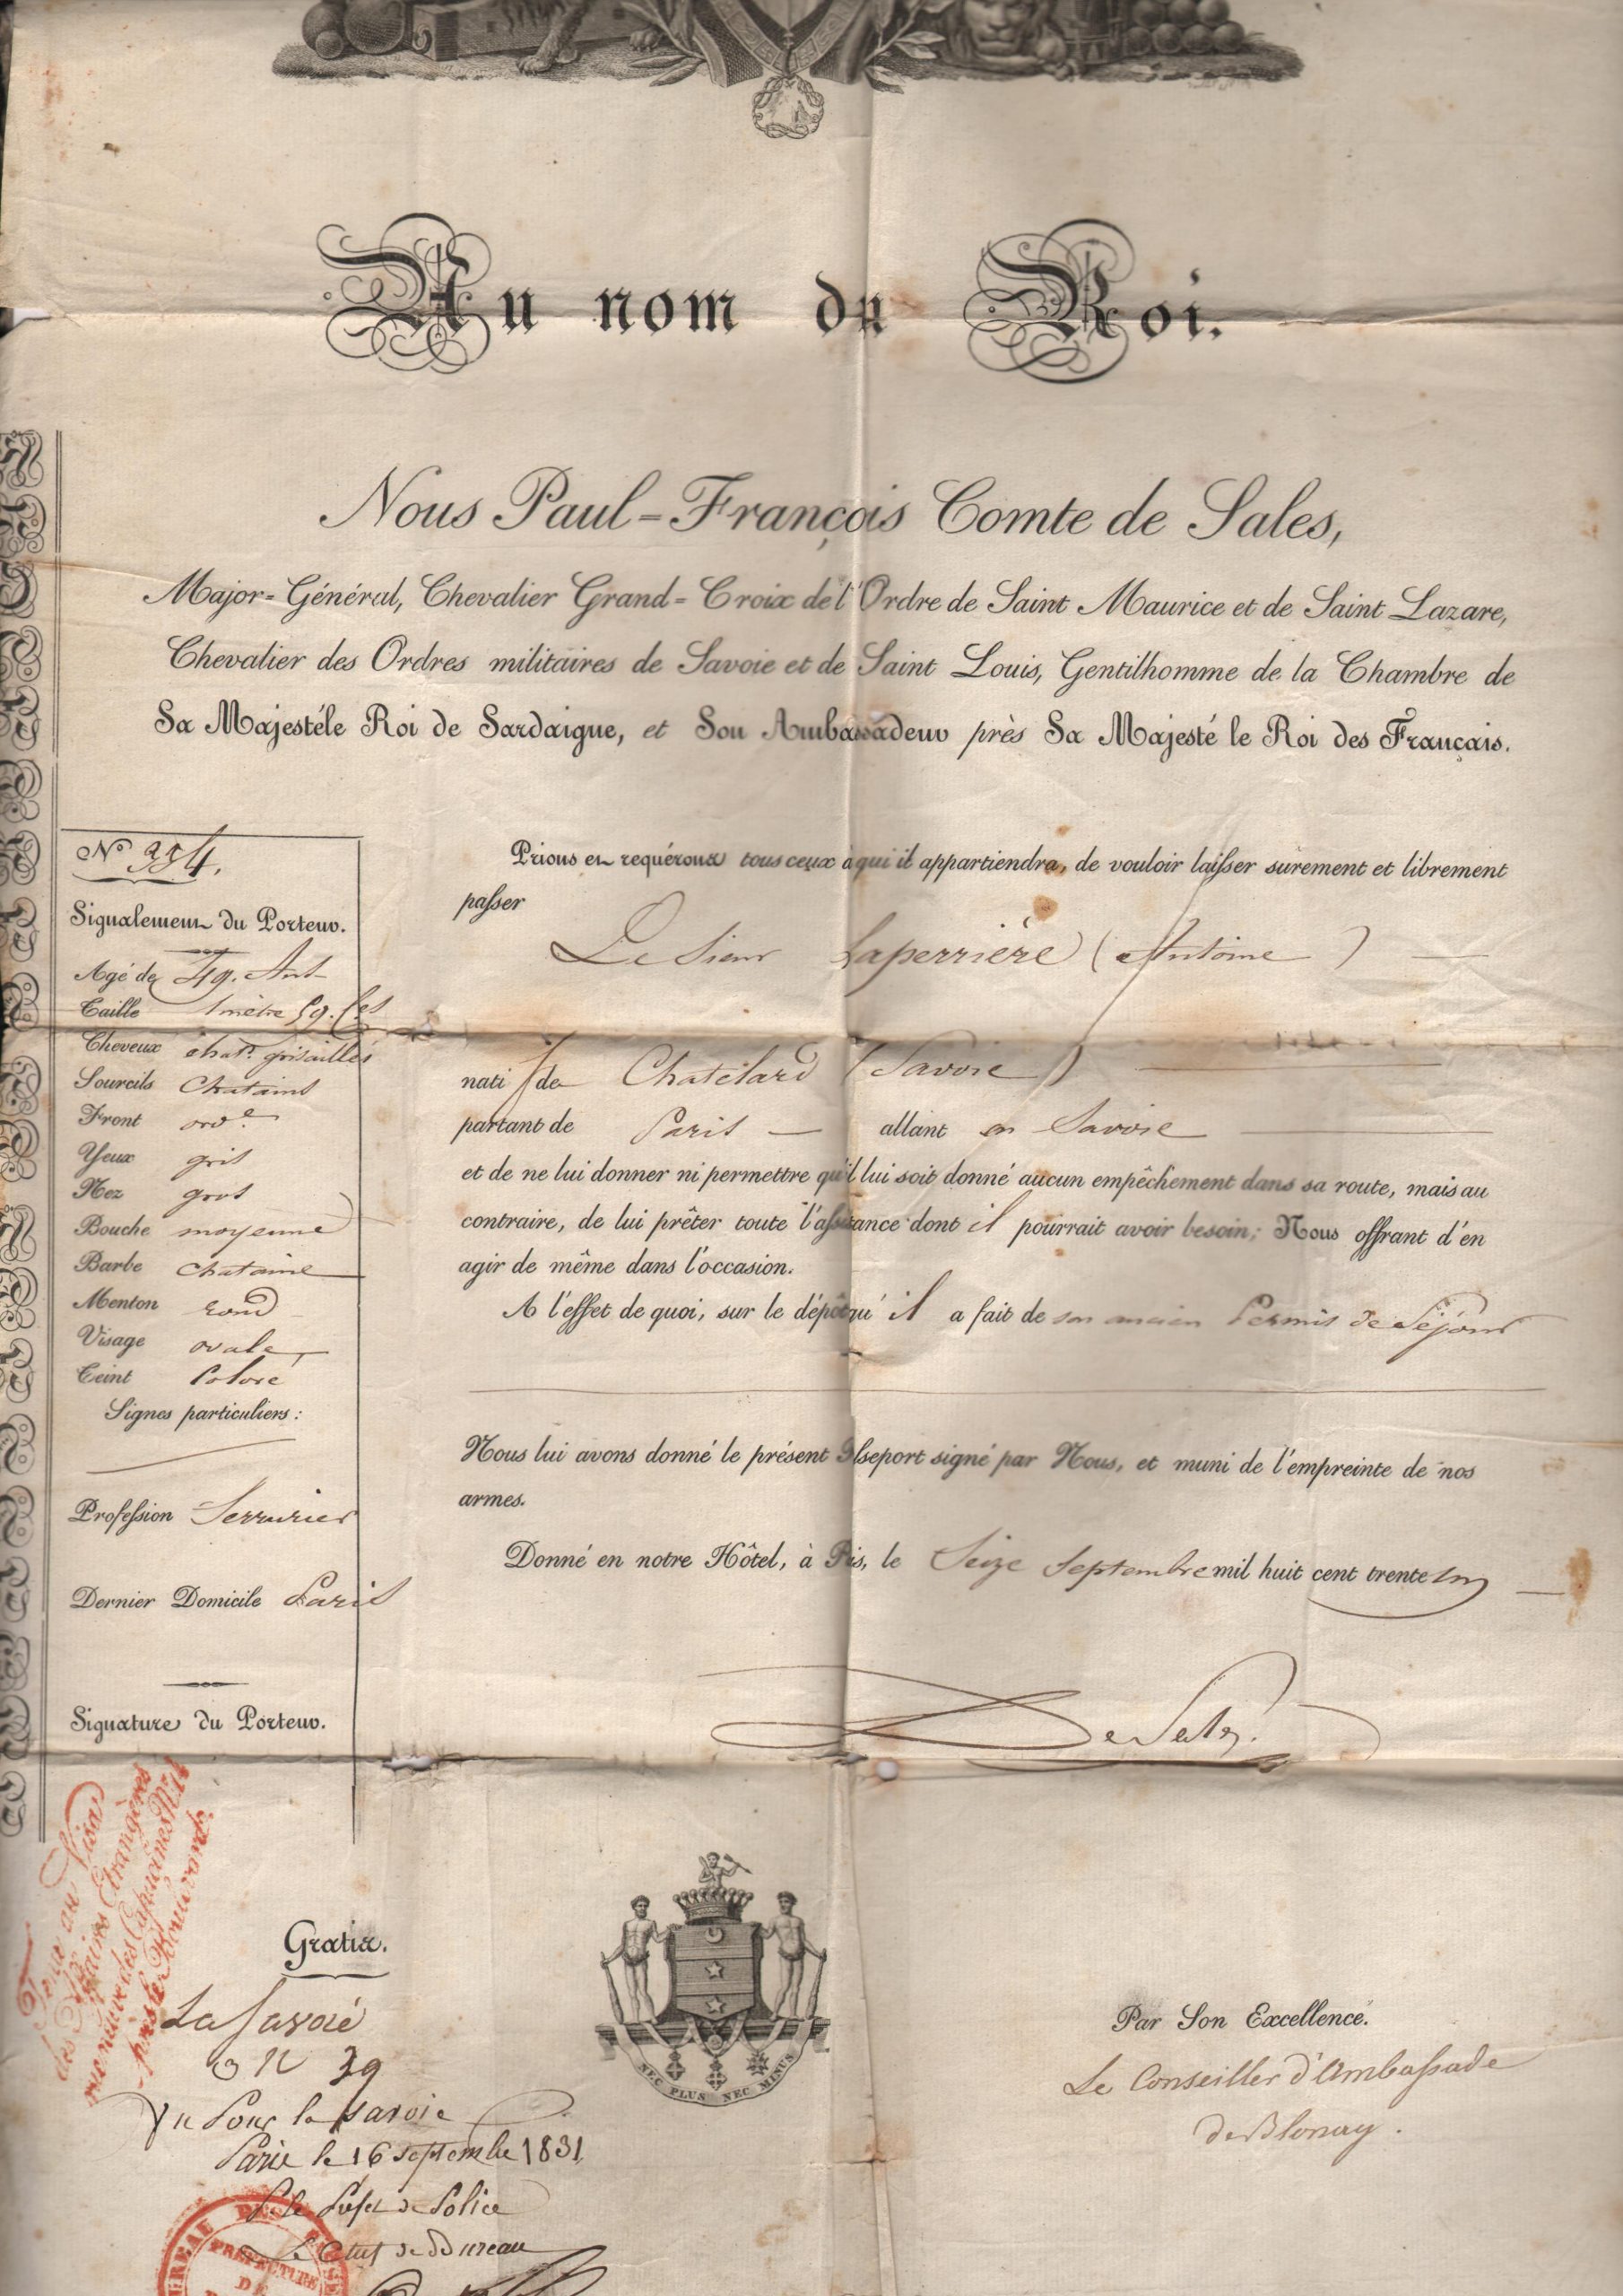 Au nom du Roi.
Nous Paul=François Comte de Sales,
Major=Général, Chevalier Grand=Croix de l'Ordre de Saint Maurice et de Saint Lazare,
Chevalier des Ordres militaires de Savoie et de Saint Louis, Gentilhomme de la Chambre de
Sa Majesté le Roi de Sardaigne, et Son Ambassadeur près Sa Majesté le Roi des Français.
N° 354.
Signalement du Porteur.
Agé de 49. Ans
Taille 1 mètre 59. Ces
Cheveux chat. grisaillés
Sourcils Chatains
Front ord.e
Yeux gris
Nez gros
Bouche moyenne
Barbe Chataine
Menton rond
Visage ovale
Teint Coloré
Signes particuliers:
Profession Serrurier
Dernier Domicile Paris
Signature du Porteur.
Prions et requérons tous ceux à qui il appartiendra, de vouloir laisser sûrement et librement
passer
Le Sieur Laperrière (Antoine)
natif de Chatelard (Savoie)
partant de Paris — allant en Savoie
et de ne lui donner ni permettre qu'il lui soit donné aucun empêchement dans sa route, mais au
contraire, de lui prêter toute l'assistance dont il pourrait avoir besoin; Nous offrant d'en
agir de même dans l'occasion.
A l'effet de quoi, sur le dépôt qu'il a fait de son ancien Permis de Séjour
Nous lui avons donné le présent Passeport signé par Nous, et muni de l'empreinte de nos
armes.
Donné en notre Hôtel, à Paris, le Seize Septembre mil huit cent trente un
De Sales.
Visa
des Affaires Etrangères
rue neuve des Capucines N° 16
près le Boulevard
Gratis.
La Savoie
39
Vu Pour la Savoie
Paris le 16 septembre 1831
P. le Préfet de Police
Le Chef de Bureau
BUREAU DES
PRÉFECTURE
DE
NEC PLUS NEC MINUS
Par Son Excellence.
Le Conseiller d'Ambassade
de Blonay.